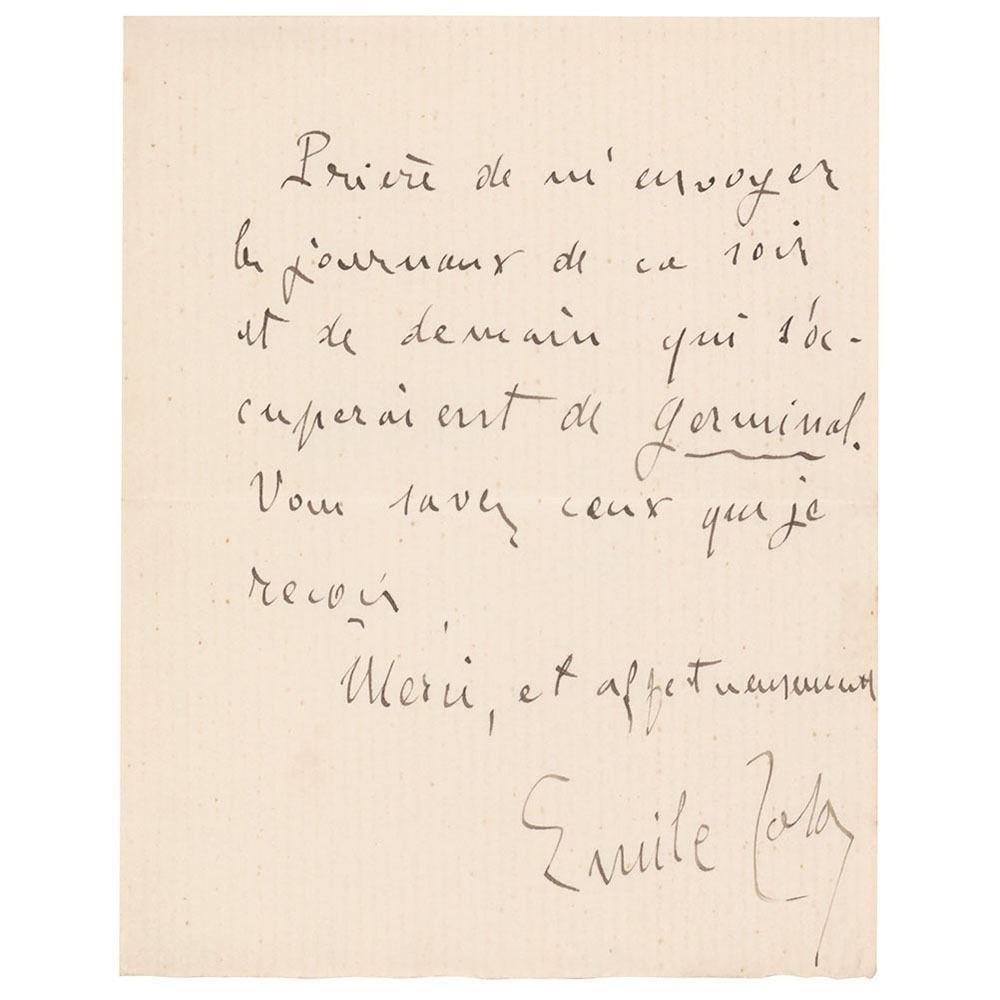 Prière de m'envoyer
les journaux de ce soir
et de demain qui s'oc-
cuperaient de Germinal.
Vous savez ceux que je
reçois
Merci, et affectueusement
Emile Zola